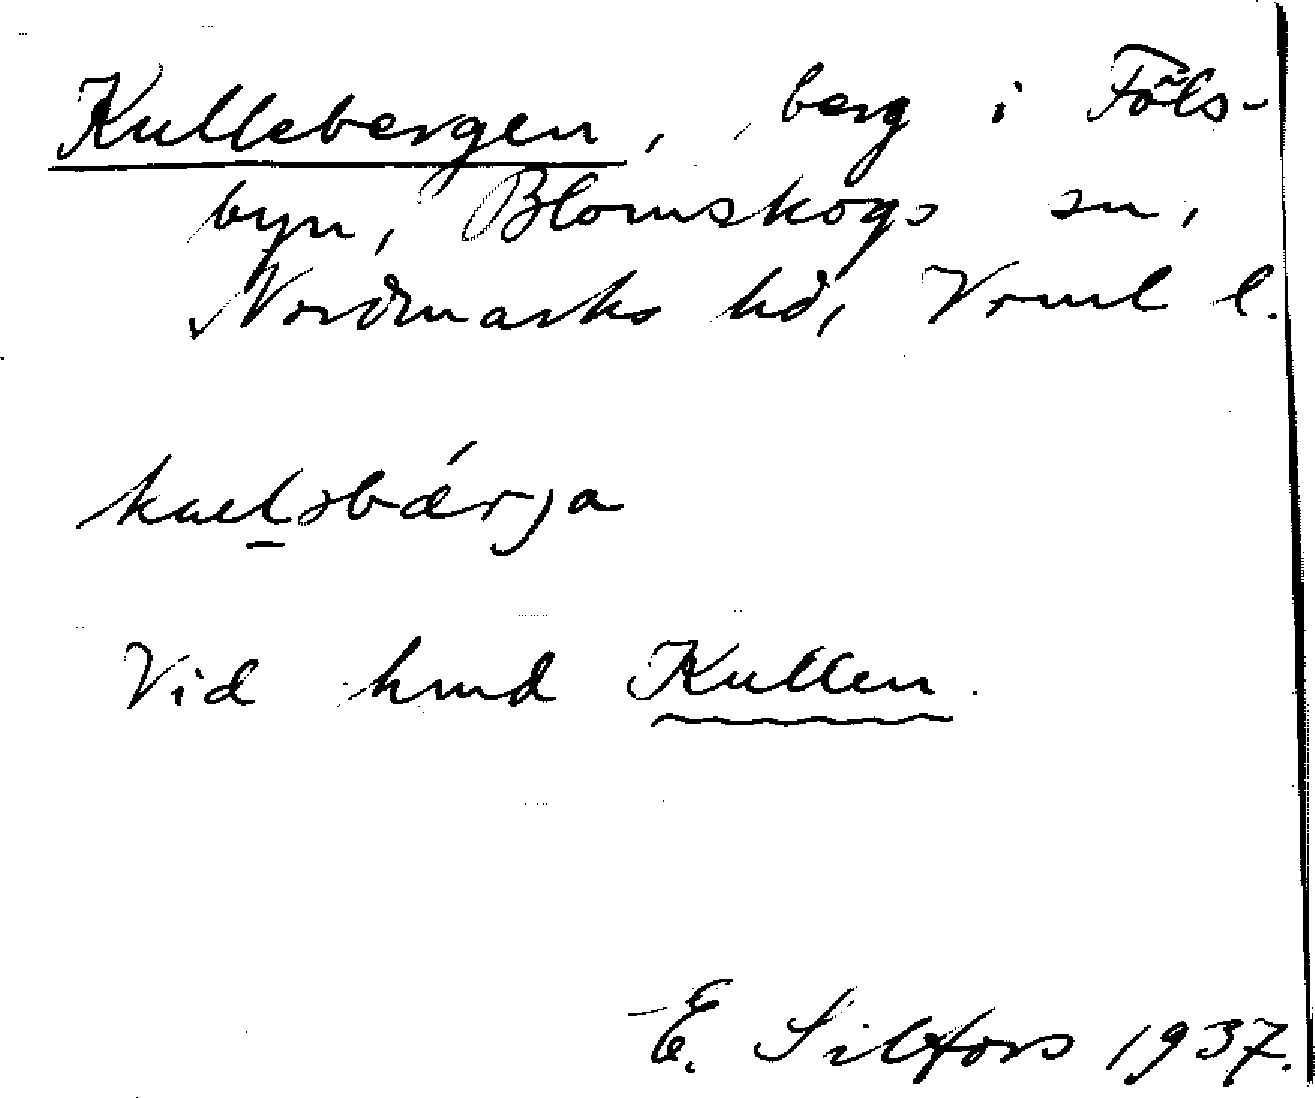 Kullebergen, berg i Föls-
byn, Blomskogs sn,
Nordmarks hd, Vrml l.
kuel̲əbǽrja
Vid hmd Kullen.
E. Silfors 1937.